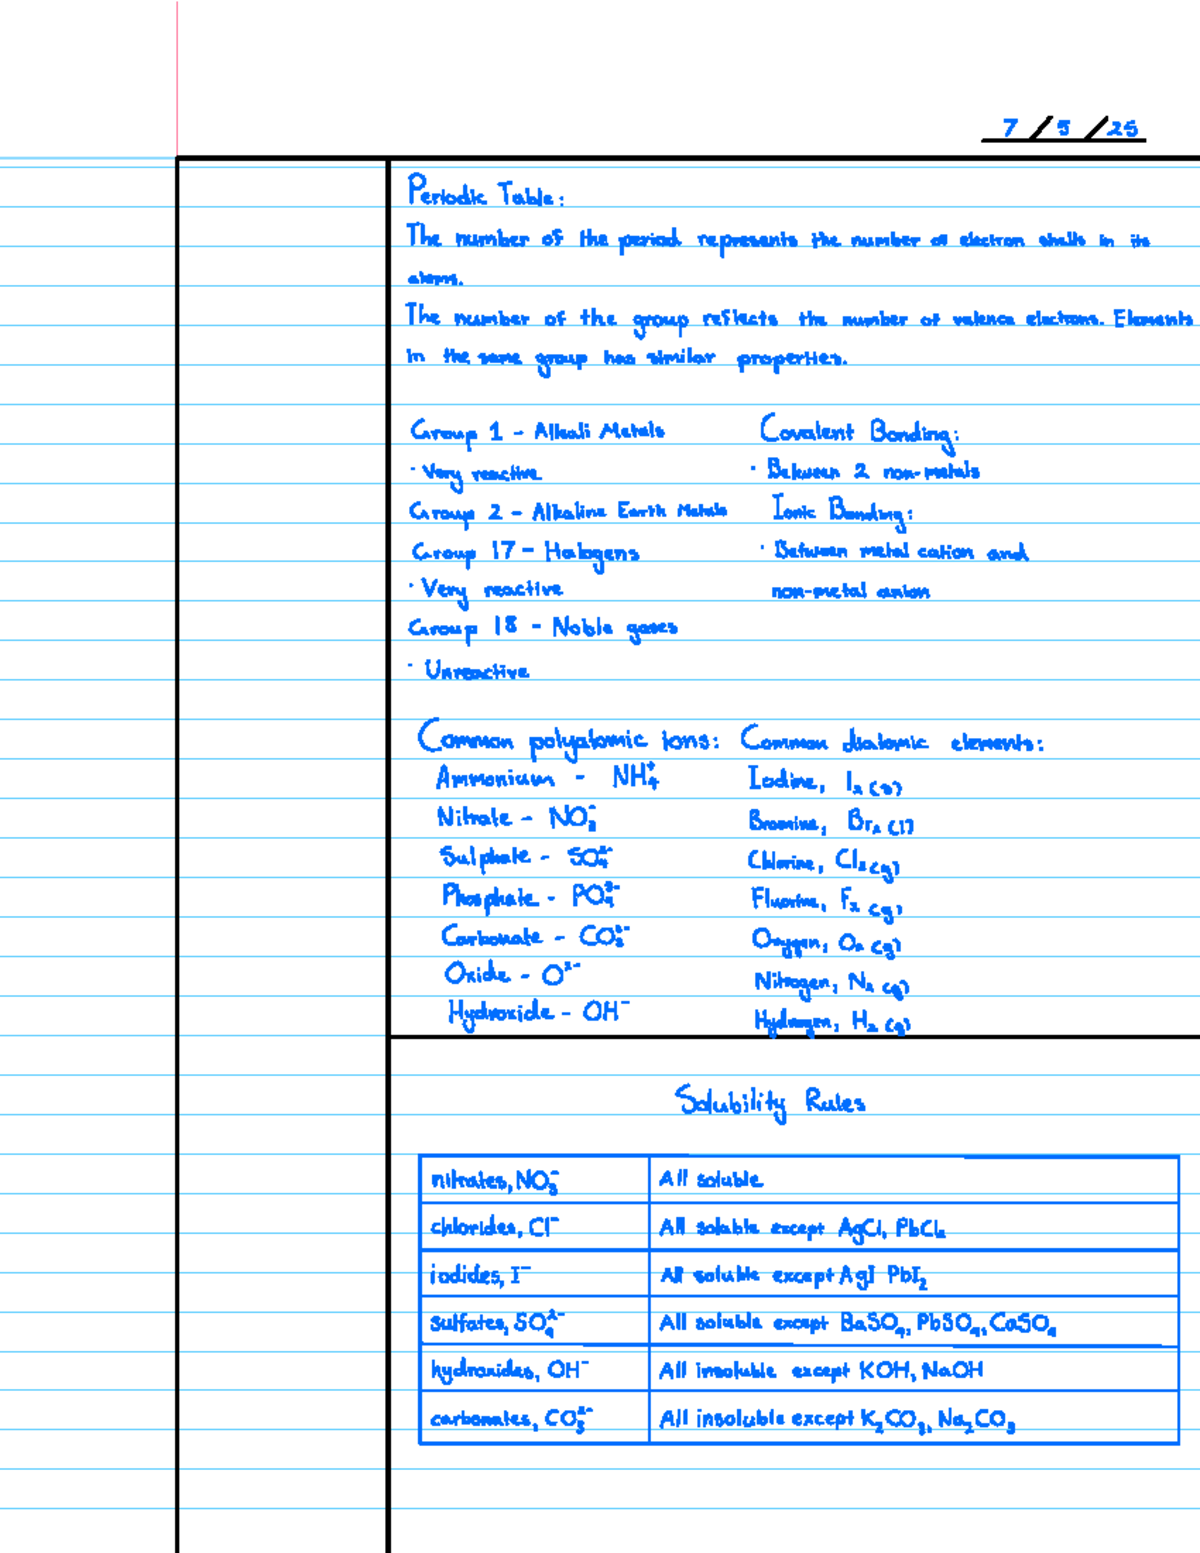 7/5/25
Periodic Table:
The number of the period represents the number of electron shells in its
atoms.
The number of the group reflects the number of valence electrons. Elements
in the same group has similar properties.
Group 1 - Alkali Metals
· Very reactive
Group 2 - Alkaline Earth Metals
Group 17 - Halogens
· Very reactive
Group 18 - Noble gases
· Unreactive
Covalent Bonding:
· Between 2 non-metals
Ionic Bonding:
· Between metal cation and
non-metal anion
Common polyatomic ions:
Ammonium - NH₄⁺
Nitrate - NO₃⁻
Sulphate - SO₄²⁻
Phosphate - PO₄³⁻
Carbonate - CO₃²⁻
Oxide - O²⁻
Hydroxide - OH⁻
Common diatomic elements:
Iodine, I₂ (s)
Bromine, Br₂ (l)
Chlorine, Cl₂ (g)
Fluorine, F₂ (g)
Oxygen, O₂ (g)
Nitrogen, N₂ (g)
Hydrogen, H₂ (g)
Solubility Rules
nitrates, NO₃⁻ All soluble
chlorides, Cl⁻ All soluble except AgCl, PbCl₂
iodides, I⁻ All soluble except AgI PbI₂
sulfates, SO₄²⁻ All soluble except BaSO₄, PbSO₄, CaSO₄
hydroxides, OH⁻ All insoluble except KOH, NaOH
carbonates, CO₃²⁻ All insoluble except K₂CO₃, Na₂CO₃